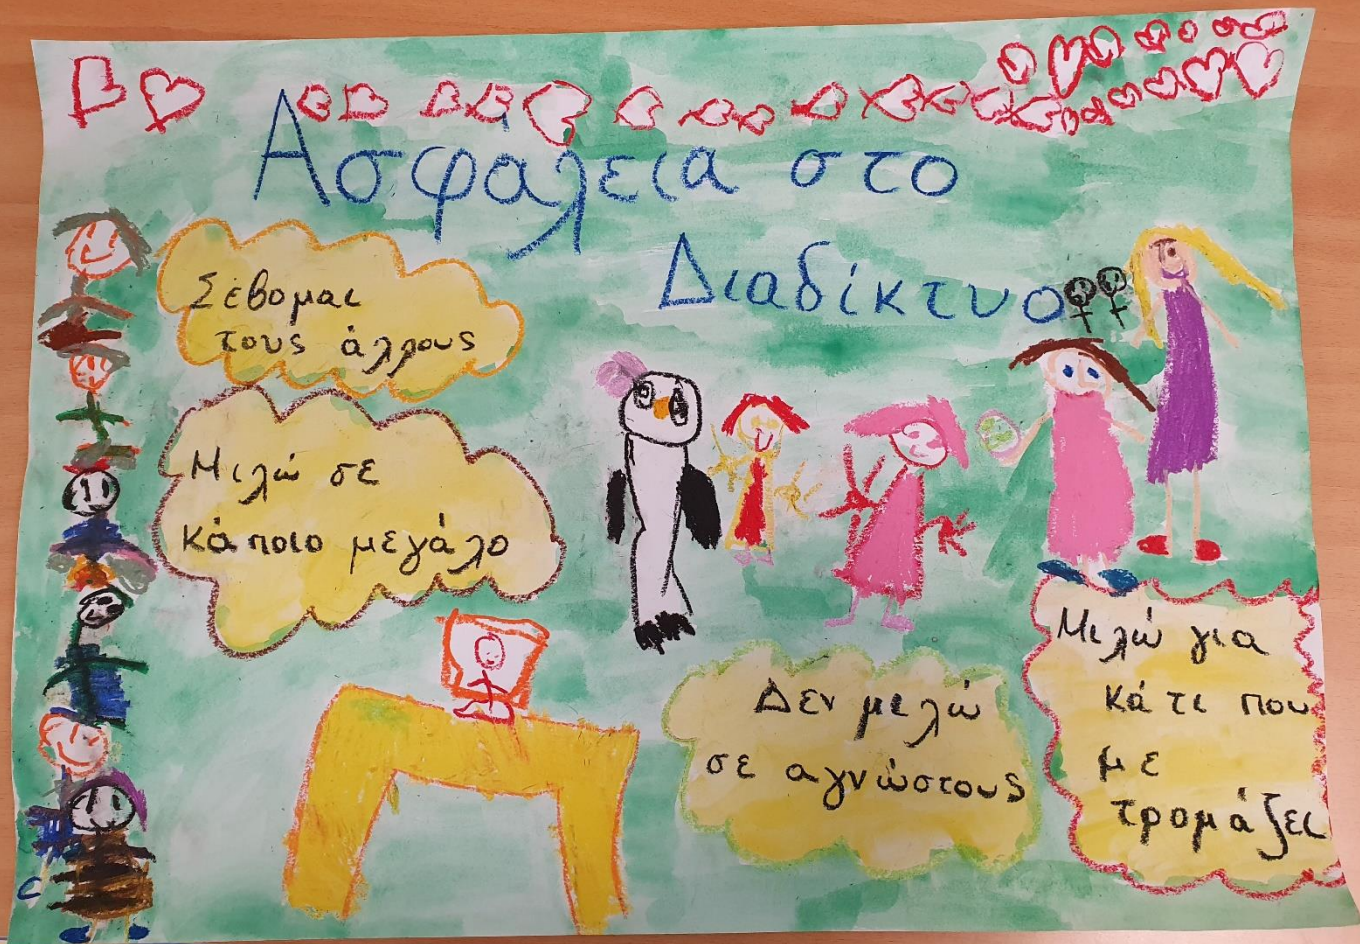 Ασφάλεια στο
Διαδίκτυο
Σέβομαι
τους άλλους
Μιλώ σε
κάποιο μεγάλο
Δεν μιλώ
σε αγνώστους
Μιλώ για
κάτι που
με
τρομάζει